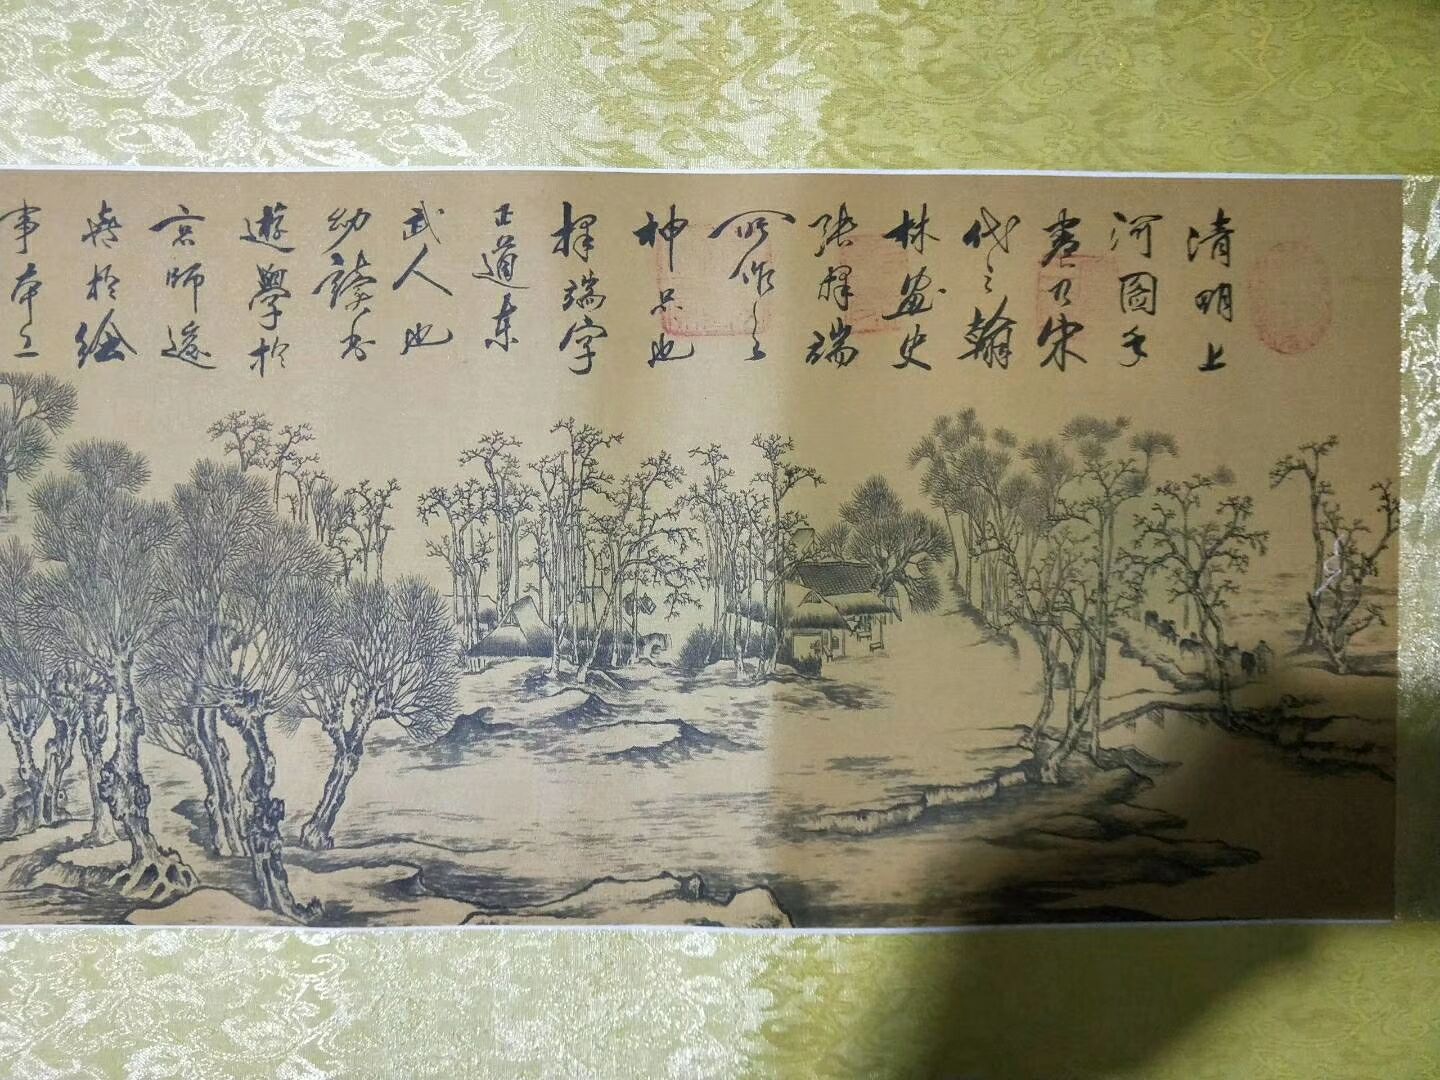 清明上
河圖手
卷乃宋
代之翰
林畫史
張擇端
所作之
神品也
擇端字
正道東
武人也
幼讀書
遊學於
京師遂
喜於繪
事本工